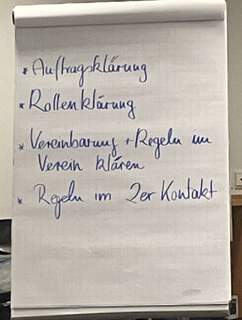 * Auftragsklärung
* Rollenklärung
* Vereinbarung + Regeln im
Verein klären
* Regeln im 2er Kontakt